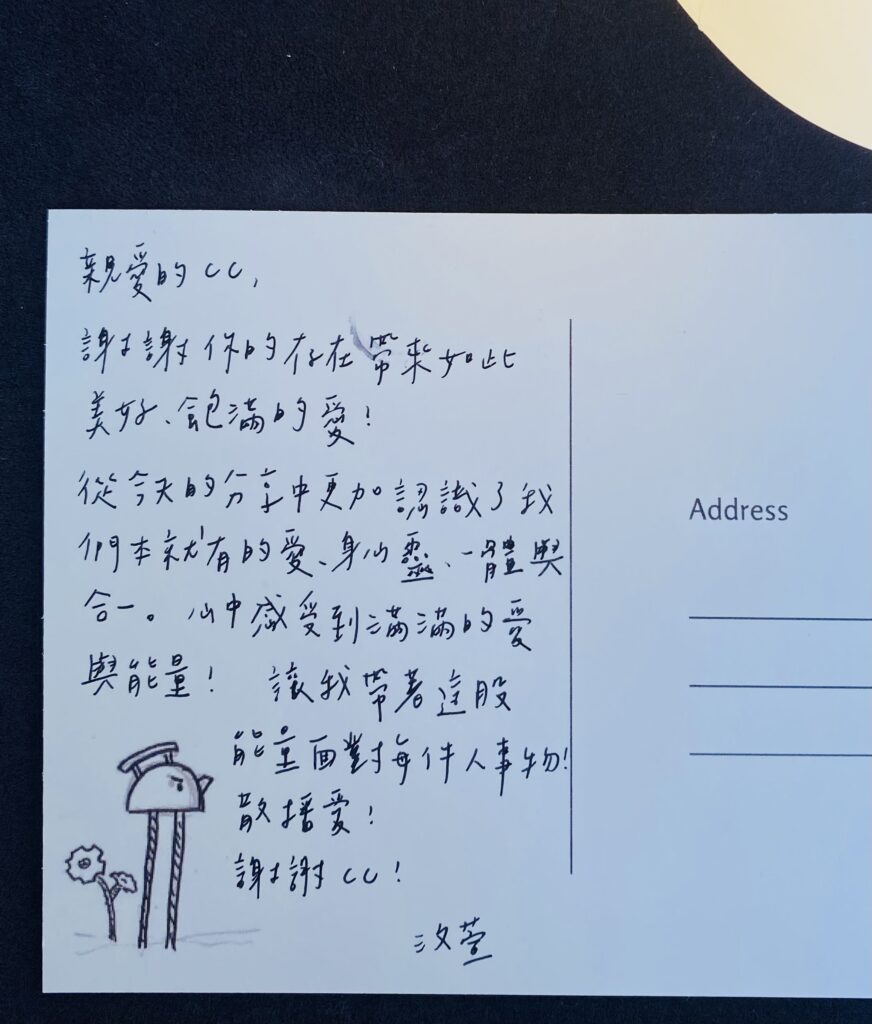 親愛的CC,
謝謝你的存在帶來如此
美好、飽滿的愛!
從今天的分享中更加認識了我
們本就有的愛、身心靈、一體與
合一。心中感受到滿滿的愛
與能量! 讓我帶著這股
能量面對每件人事物!
散播愛!
謝謝CC!
汶萱
Address